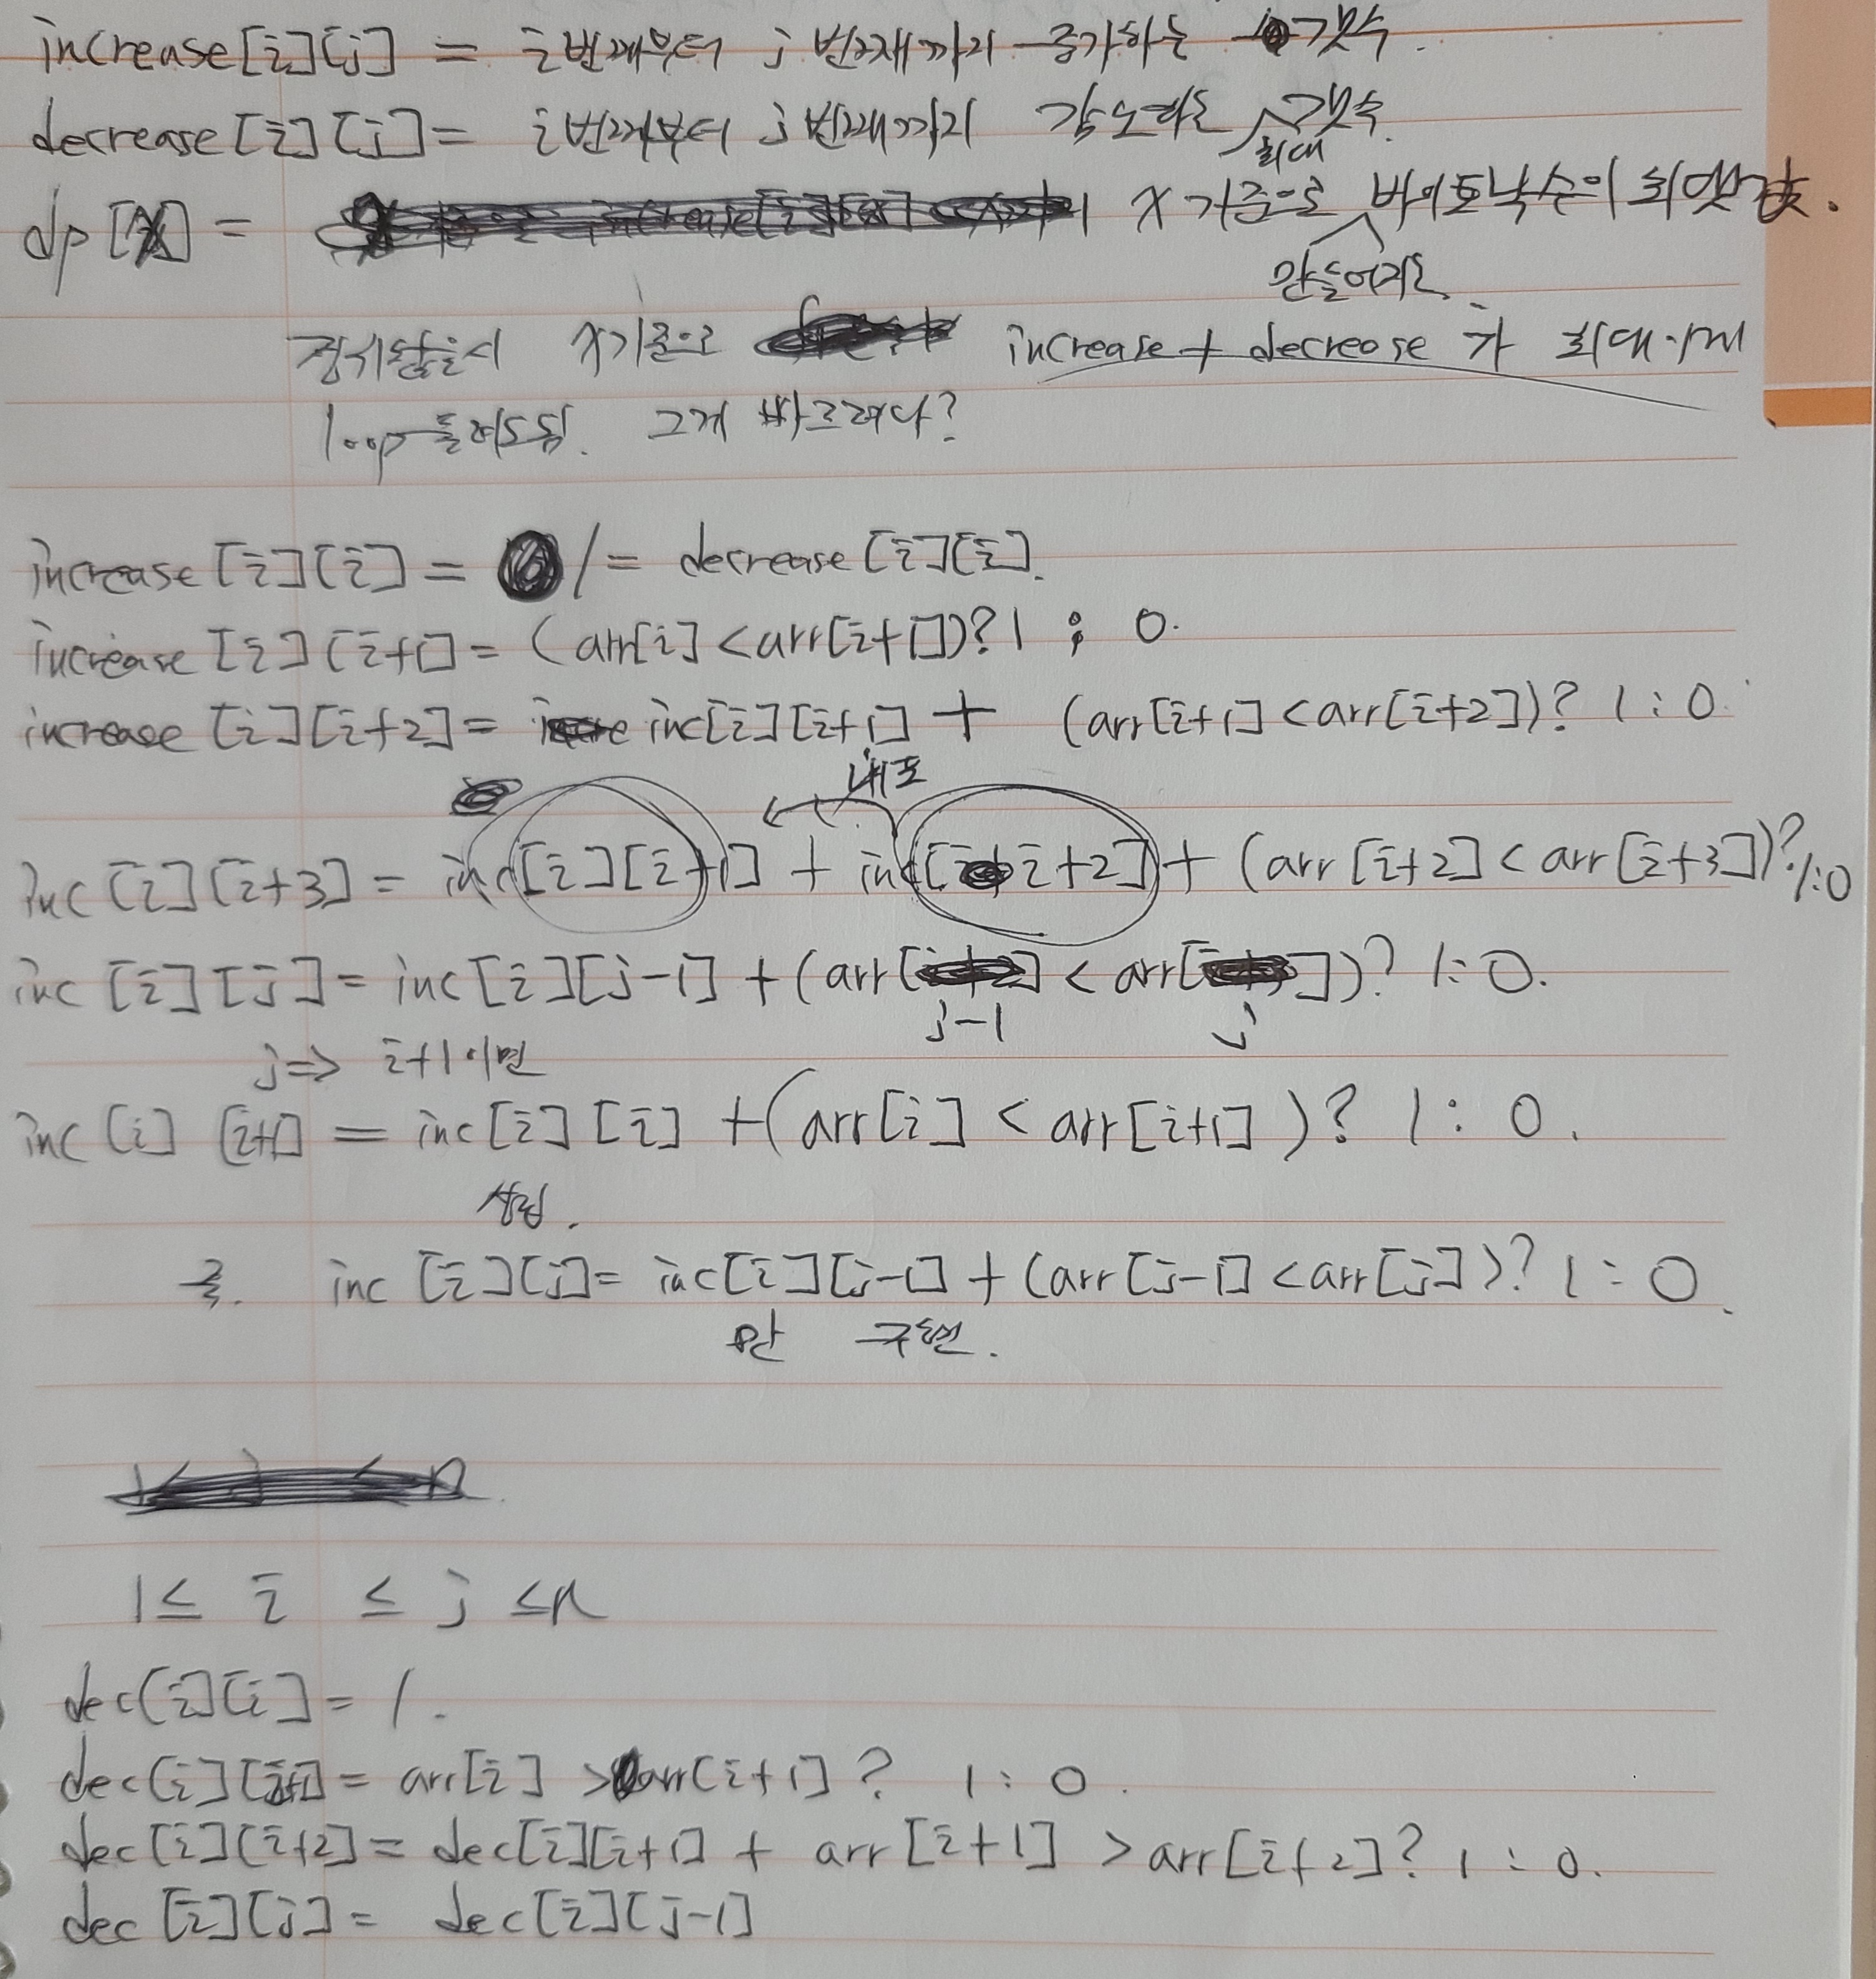 increase[i][j] = i번째부터 j번째까지 증가하는 갯수.
decrease[i][j] = i번째부터 j번째까지 감소하는 최대 갯수.
dp[X] = X 기준으로 만들어지는 바이토닉수의 최댓값.
X기준으로 increase + decrease 가 최대.
loop 돌려도됨. 그게 빠르려나?
increase[i][i] = 1 = decrease[i][i].
increase[i][i+1] = (arr[i] < arr[i+1])? 1 : 0.
increase[i][i+2] = inc[i][i+1] + (arr[i+1] < arr[i+2])? 1 : 0.
내포
inc[i][i+3] = inc[i][i+1] + inc[i+2] + (arr[i+2] < arr[i+3])? 1:0
inc[i][j] = inc[i][j-1] + (arr[j-1] < arr[j])? 1:0.
j => i+1이면
inc[i][i+1] = inc[i][i] + (arr[i] < arr[i+1])? 1 : 0.
성립.
즉. inc[i][j] = inc[i][j-1] + (arr[j-1] < arr[j])? 1 : 0.
만 구현.
1 ≤ i ≤ j ≤ n
dec[i][i] = 1.
dec[i][i+1] = arr[i] > arr[i+1]? 1 : 0.
dec[i][i+2] = dec[i][i+1] + arr[i+1] > arr[i+2]? 1 : 0.
dec[i][j] = dec[i][j-1]